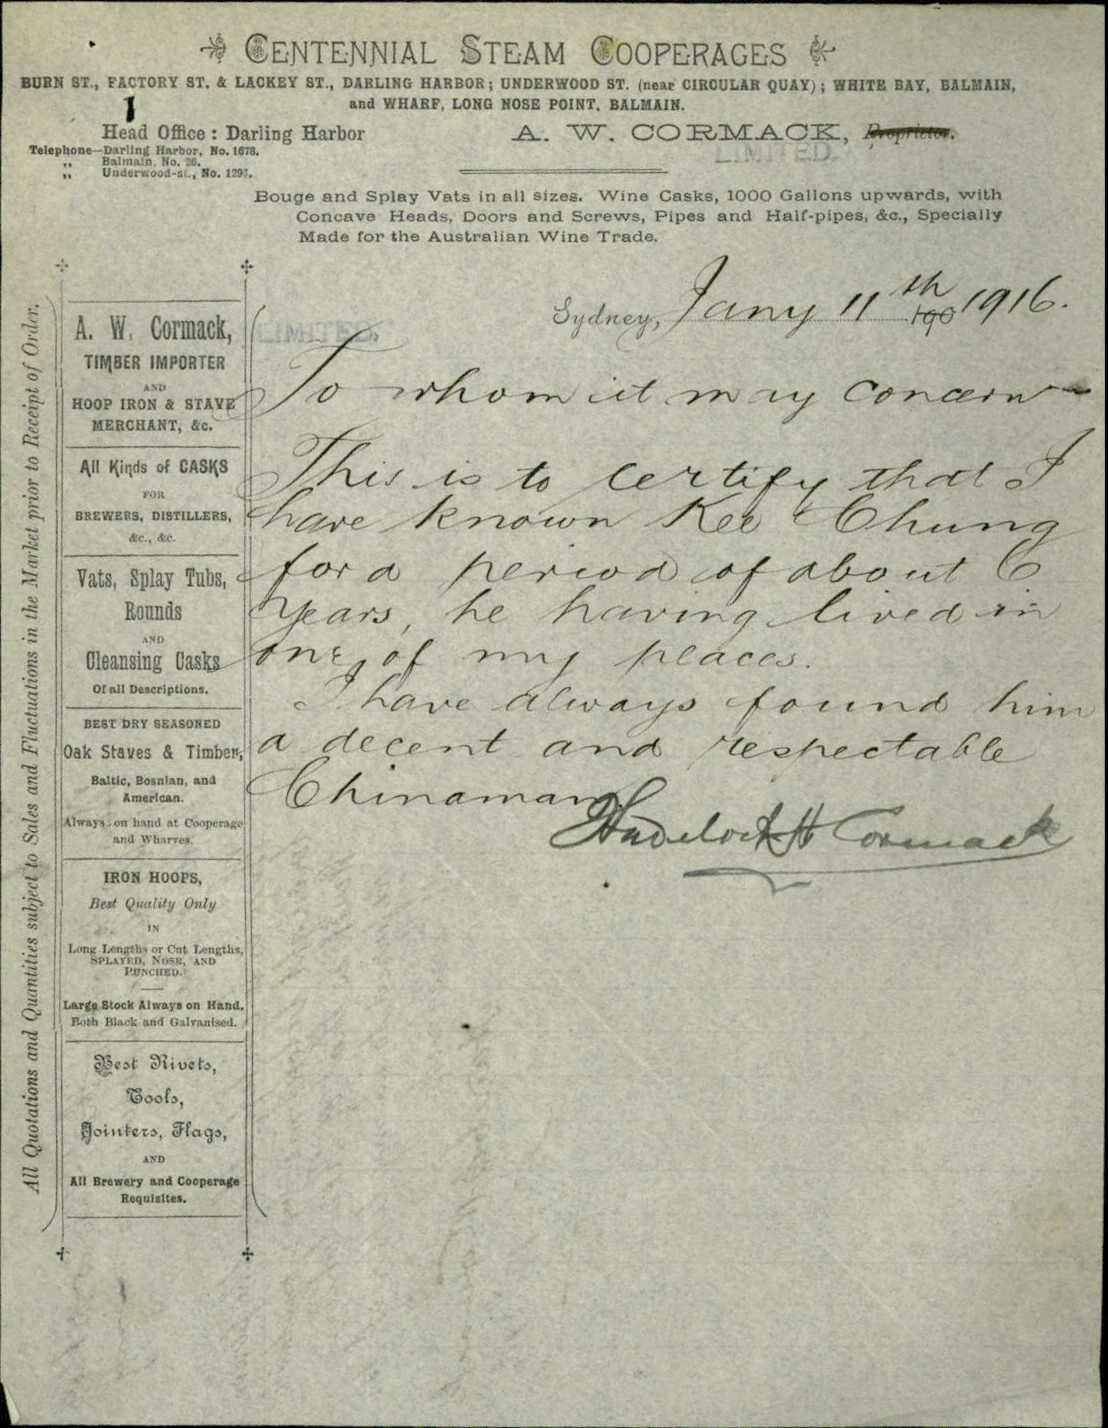 CENTENNIAL STEAM COOPERAGES
BURN ST., FACTORY ST. & LACKEY ST., DARLING HARBOR; UNDERWOOD ST. (near CIRCULAR QUAY); WHITE BAY, BALMAIN,
and WHARF, LONG NOSE POINT, BALMAIN.
Head Office : Darling Harbor
A. W. CORMACK, Proprietor.
LIMITED.
Telephone—Darling Harbor, No. 1678.
„ Balmain, No. 26.
„ Underwood-st., No.
Bouge and Splay Vats in all sizes. Wine Casks, 1000 Gallons upwards, with
Concave Heads, Doors and Screws, Pipes and Half-pipes, &c., Specially
Made for the Australian Wine Trade.
Sydney, Jany 11th 190 1916.
All Quotations and Quantities subject to Sales and Fluctuations in the Market prior to Receipt of Order.
A. W. Cormack,
LIMITED.
TIMBER IMPORTER
AND
HOOP IRON & STAVE
MERCHANT, &c.
All Kinds of CASKS
FOR
BREWERS, DISTILLERS,
&c., &c.
Vats, Splay Tubs,
Rounds
AND
Cleansing Casks
Of all Descriptions.
BEST DRY SEASONED
Oak Staves & Timber,
Baltic, Bosnian, and
American.
Always on hand at Cooperage
and Wharves.
IRON HOOPS,
Best Quality Only
IN
Long Lengths or Cut Lengths,
SPLAYED, NOSE, AND
PUNCHED.
Large Stock Always on Hand.
Both Black and Galvanised.
Best Rivets,
Tools,
Jointers, Flags,
AND
All Brewery and Cooperage
Requisites.
To whom it may concern
This is to certify that I
have known Kee Chung
for a period of about 6
years, he having lived in
one of my places.
I have always found him
a decent and respectable
Chinaman
H Cormack